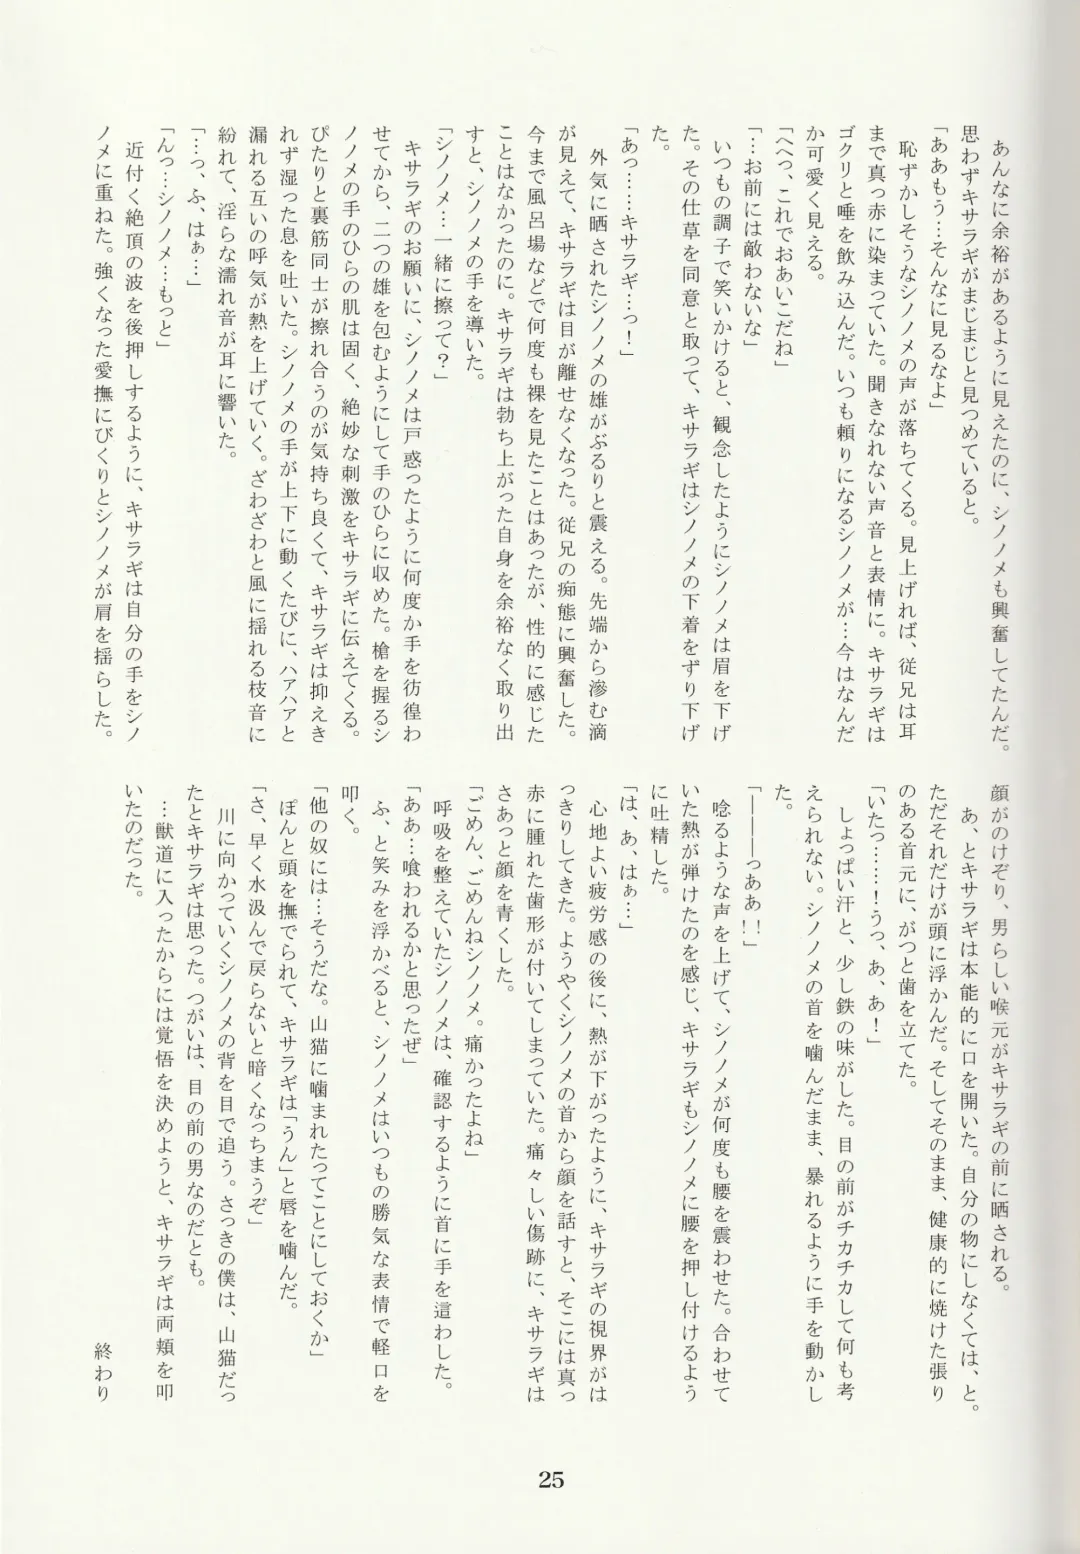 あんなに余裕があるように見えたのに、シノノメも興奮してたんだ。
思わずキサラギがまじまじと見つめていると。
「ああもう…そんなに見るなよ」
恥ずかしそうなシノノメの声が落ちてくる。見上げれば、従兄は耳
まで真っ赤に染まっていた。聞きなれない声音と表情に。キサラギは
ゴクリと唾を飲み込んだ。いつも頼りになるシノノメが…今はなんだ
か可愛く見える。
「へへっ、これでおあいこだね」
「…お前には敵わないな」
いつもの調子で笑いかけると、観念したようにシノノメは眉を下げ
た。その仕草を同意と取って、キサラギはシノノメの下着をずり下げ
た。
「あっ……キサラギ…っ！」
外気に晒されたシノノメの雄がぶるりと震える。先端から滲む滴
が見えて、キサラギは目が離せなくなった。従兄の痴態に興奮した。
今まで風呂場などで何度も裸を見たことはあったが、性的に感じた
ことはなかったのに。キサラギは勃ち上がった自身を余裕なく取り出
すと、シノノメの手を導いた。
「シノノメ…一緒に擦って？」
キサラギのお願いに、シノノメは戸惑ったように何度か手を彷徨わ
せてから、二つの雄を包むようにして手のひらに収めた。槍を握るシ
ノノメの手のひらの肌は固く、絶妙な刺激をキサラギに伝えてくる。
ぴたりと裏筋同士が擦れ合うのが気持ち良くて、キサラギは抑えき
れず湿った息を吐いた。シノノメの手が上下に動くたびに、ハアハァと
漏れる互いの呼気が熱を上げていく。ざわざわと風に揺れる枝音に
紛れて、淫らな濡れ音が耳に響いた。
「…っ、ふ、はぁ…」
「んっ…シノノメ…もっと」
近付く絶頂の波を後押しするように、キサラギは自分の手をシノ
ノメに重ねた。強くなった愛撫にびくりとシノノメが肩を揺らした。
顔がのけぞり、男らしい喉元がキサラギの前に晒される。
あ、とキサラギは本能的に口を開いた。自分の物にしなくては、と。
ただそれだけが頭に浮かんだ。そしてそのまま、健康的に焼けた張り
のある首元に、がつと歯を立てた。
「いたっ……！うっ、あ、あ！」
しょっぱい汗と、少し鉄の味がした。目の前がチカチカして何も考
えられない。シノノメの首を噛んだまま、暴れるように手を動かし
た。
「―――っああ！！」
唸るような声を上げて、シノノメが何度も腰を震わせた。合わせて
いた熱が弾けたのを感じ、キサラギもシノノメに腰を押し付けるよう
に吐精した。
「は、あ、はぁ…」
心地よい疲労感の後に、熱が下がったように、キサラギの視界がは
っきりしてきた。ようやくシノノメの首から顔を話すと、そこには真っ
赤に腫れた歯形が付いてしまっていた。痛々しい傷跡に、キサラギは
さあっと顔を青くした。
「ごめん、ごめんねシノノメ。痛かったよね」
呼吸を整えていたシノノメは、確認するように首に手を這わした。
「ああ…喰われるかと思ったぜ」
ふ、と笑みを浮かべると、シノノメはいつもの勝気な表情で軽口を
叩く。
「他の奴には…そうだな。山猫に噛まれたってことにしておくか」
ぽんと頭を撫でられて、キサラギは「うん」と唇を噛んだ。
「さ、早く水汲んで戻らないと暗くなっちまうぞ」
川に向かっていくシノノメの背を目で追う。さっきの僕は、山猫だっ
たとキサラギは思った。つがいは、目の前の男なのだとも。
…獣道に入ったからには覚悟を決めようと、キサラギは両頬を叩
いたのだった。
終わり
25